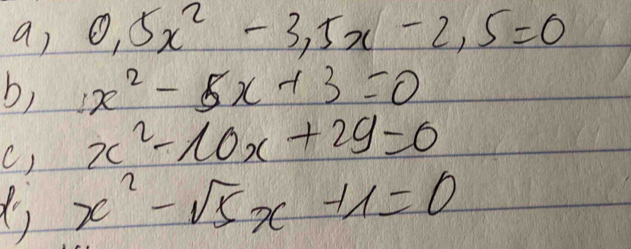 a, 0,5x² - 3,5x - 2,5 = 0
b, x² - 5x + 3 = 0
c, x² - 10x + 29 = 0
d, x² - √5x + 1 = 0